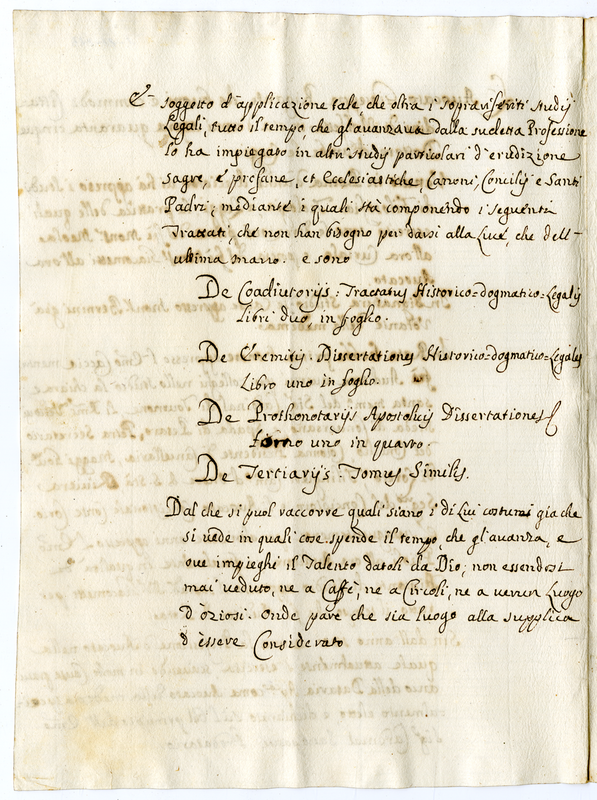 È soggetto d'applicazione tale, che oltra i sopraviferiti studij
Legali, tutto il tempo, che gl'avanzava dalla sudetta Professione
lo ha impiegato in altri studij particolari d'erudizione
sagre, e profane, et Ecclesiastiche, Canoni Concilij e Santi
Padri, mediante i quali stà componendo i seguenti
Trattati, che non han bisogno per darsi alla Luce, che dell'
ultima mano. e sono
De Coadiutorijs: Tractatus Historico=dogmatico=Legalis
Libri duo in foglio.
De Eremitis. Dissertationes Historico=dogmatico=Legales
Libro uno in foglio.
De Prothonotarijs Apostolicis Dissertationes
tomo uno in quarto.
De Tertiarijs: Tomus Similis.
Dal che si puol raccorre quali siano i di Lui costumi già che
si vede in quali cose spende il tempo, che gl'avanza, e
ove impieghi il Talento datoli da Dio; non essendosi
mai veduto, ne a Caffè, ne a Circoli, ne a verun Luogo
d'oziosi. Onde pare che sia luogo alla supplica
d'essere Considerato